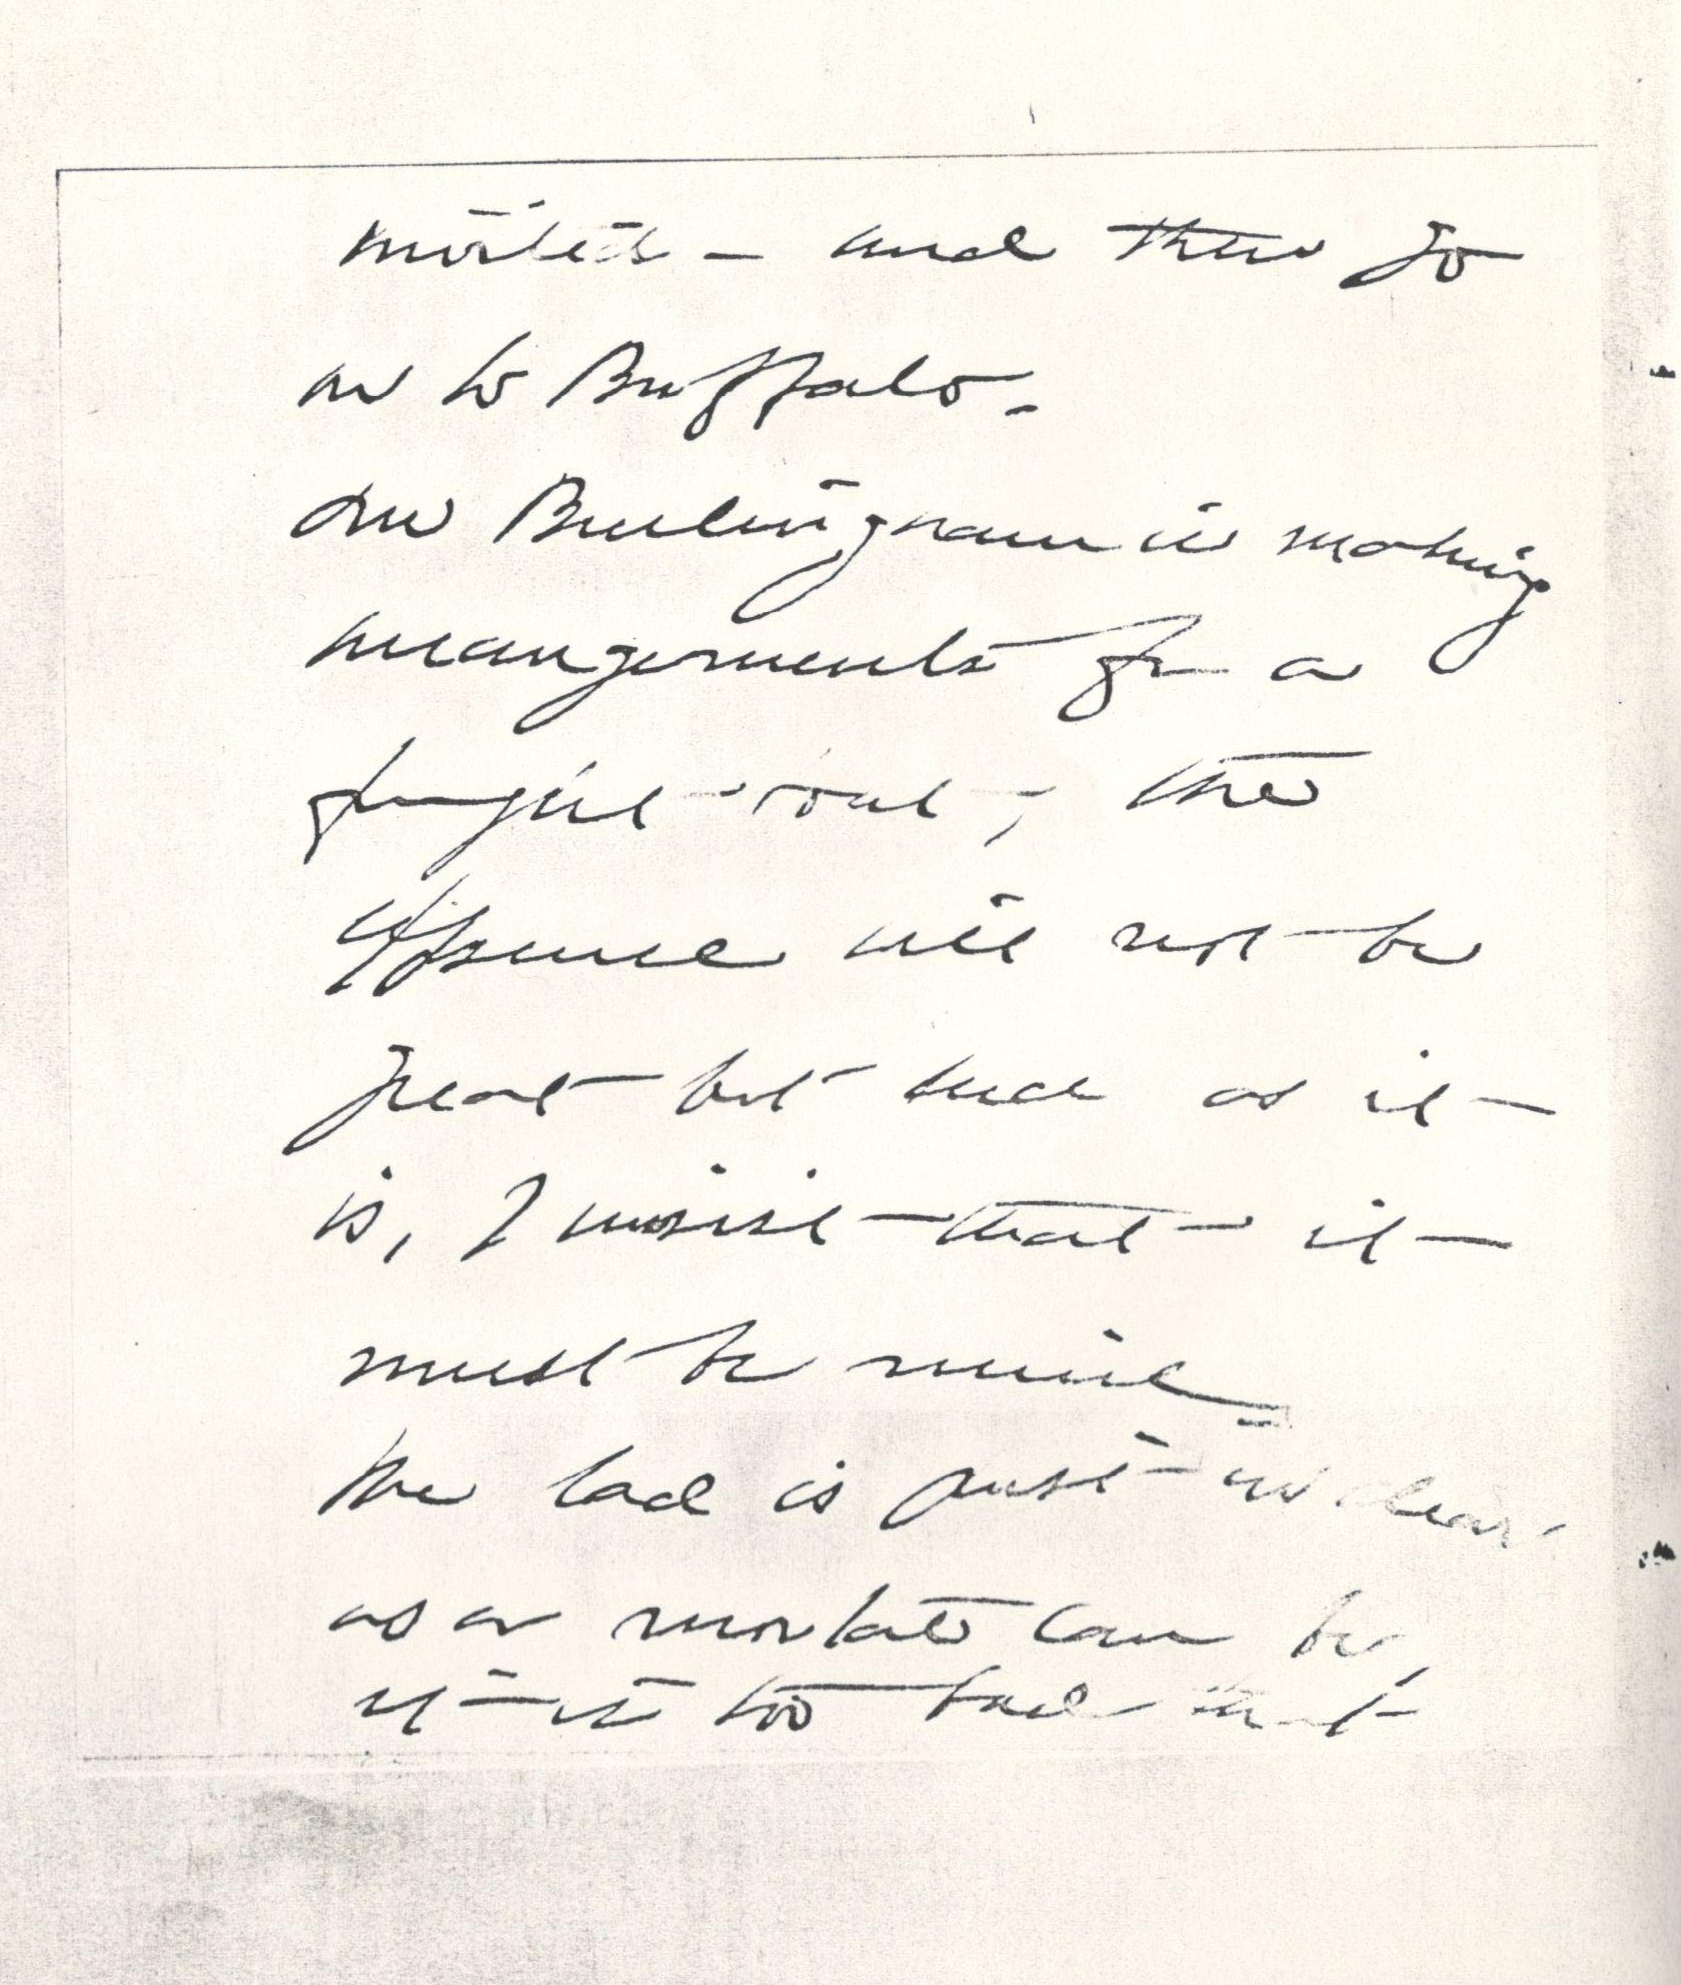 invited - and then go
on to Buffalo.
Dr Burlingham is making
arrangements for a
the
expense will not be
great but such as it
is, I insist that it
must be mine
The lad is just as dear
as a mortal can be,
it is too bad that